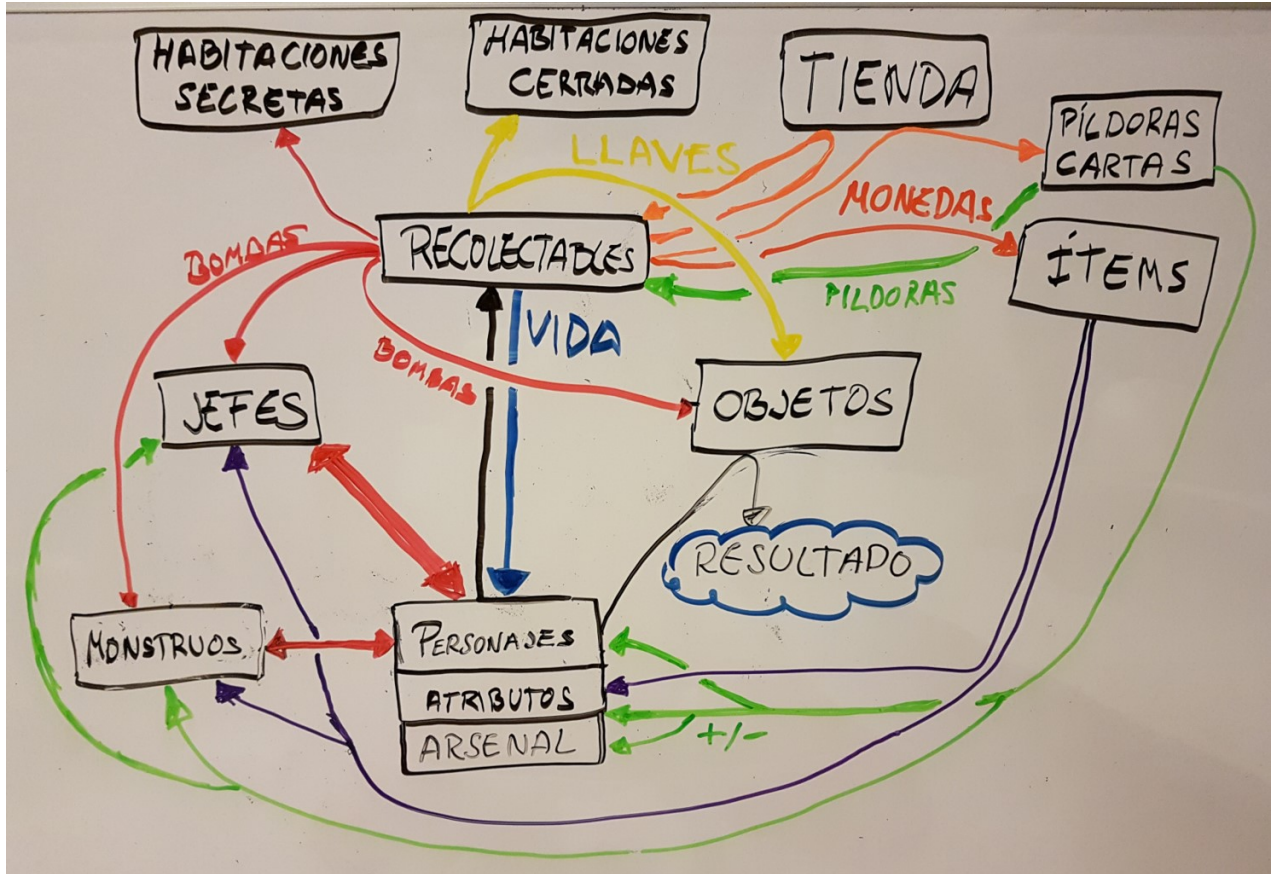 HABITACIONES
SECRETAS
HABITACIONES
CERRADAS
TIENDA
PÍLDORAS
CARTAS
LLAVES
MONEDAS
BOMBAS
RECOLECTABLES
ÍTEMS
PILDORAS
VIDA
BOMBAS
JEFES
OBJETOS
RESULTADO
MONSTRUOS
PERSONAJES
ATRIBUTOS
ARSENAL
+/-